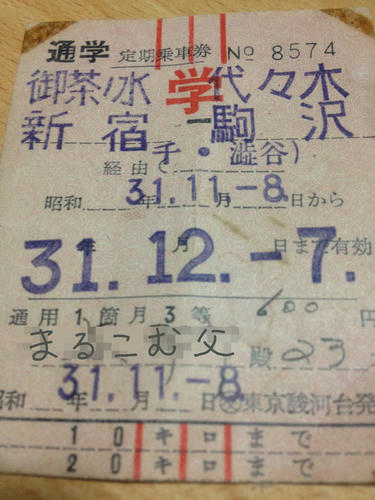 通学 定期乗車券 No 8574
御茶ノ水 学 代々木
新宿 駒沢
経由(千・澁谷)
昭和 31年11月-8日から
31年12月-7日まで有効
通用1箇月3等 600円
まるこむ父 殿 23
昭和 31年11月-8日 東京駿河台発
10キロまで
20キロまで